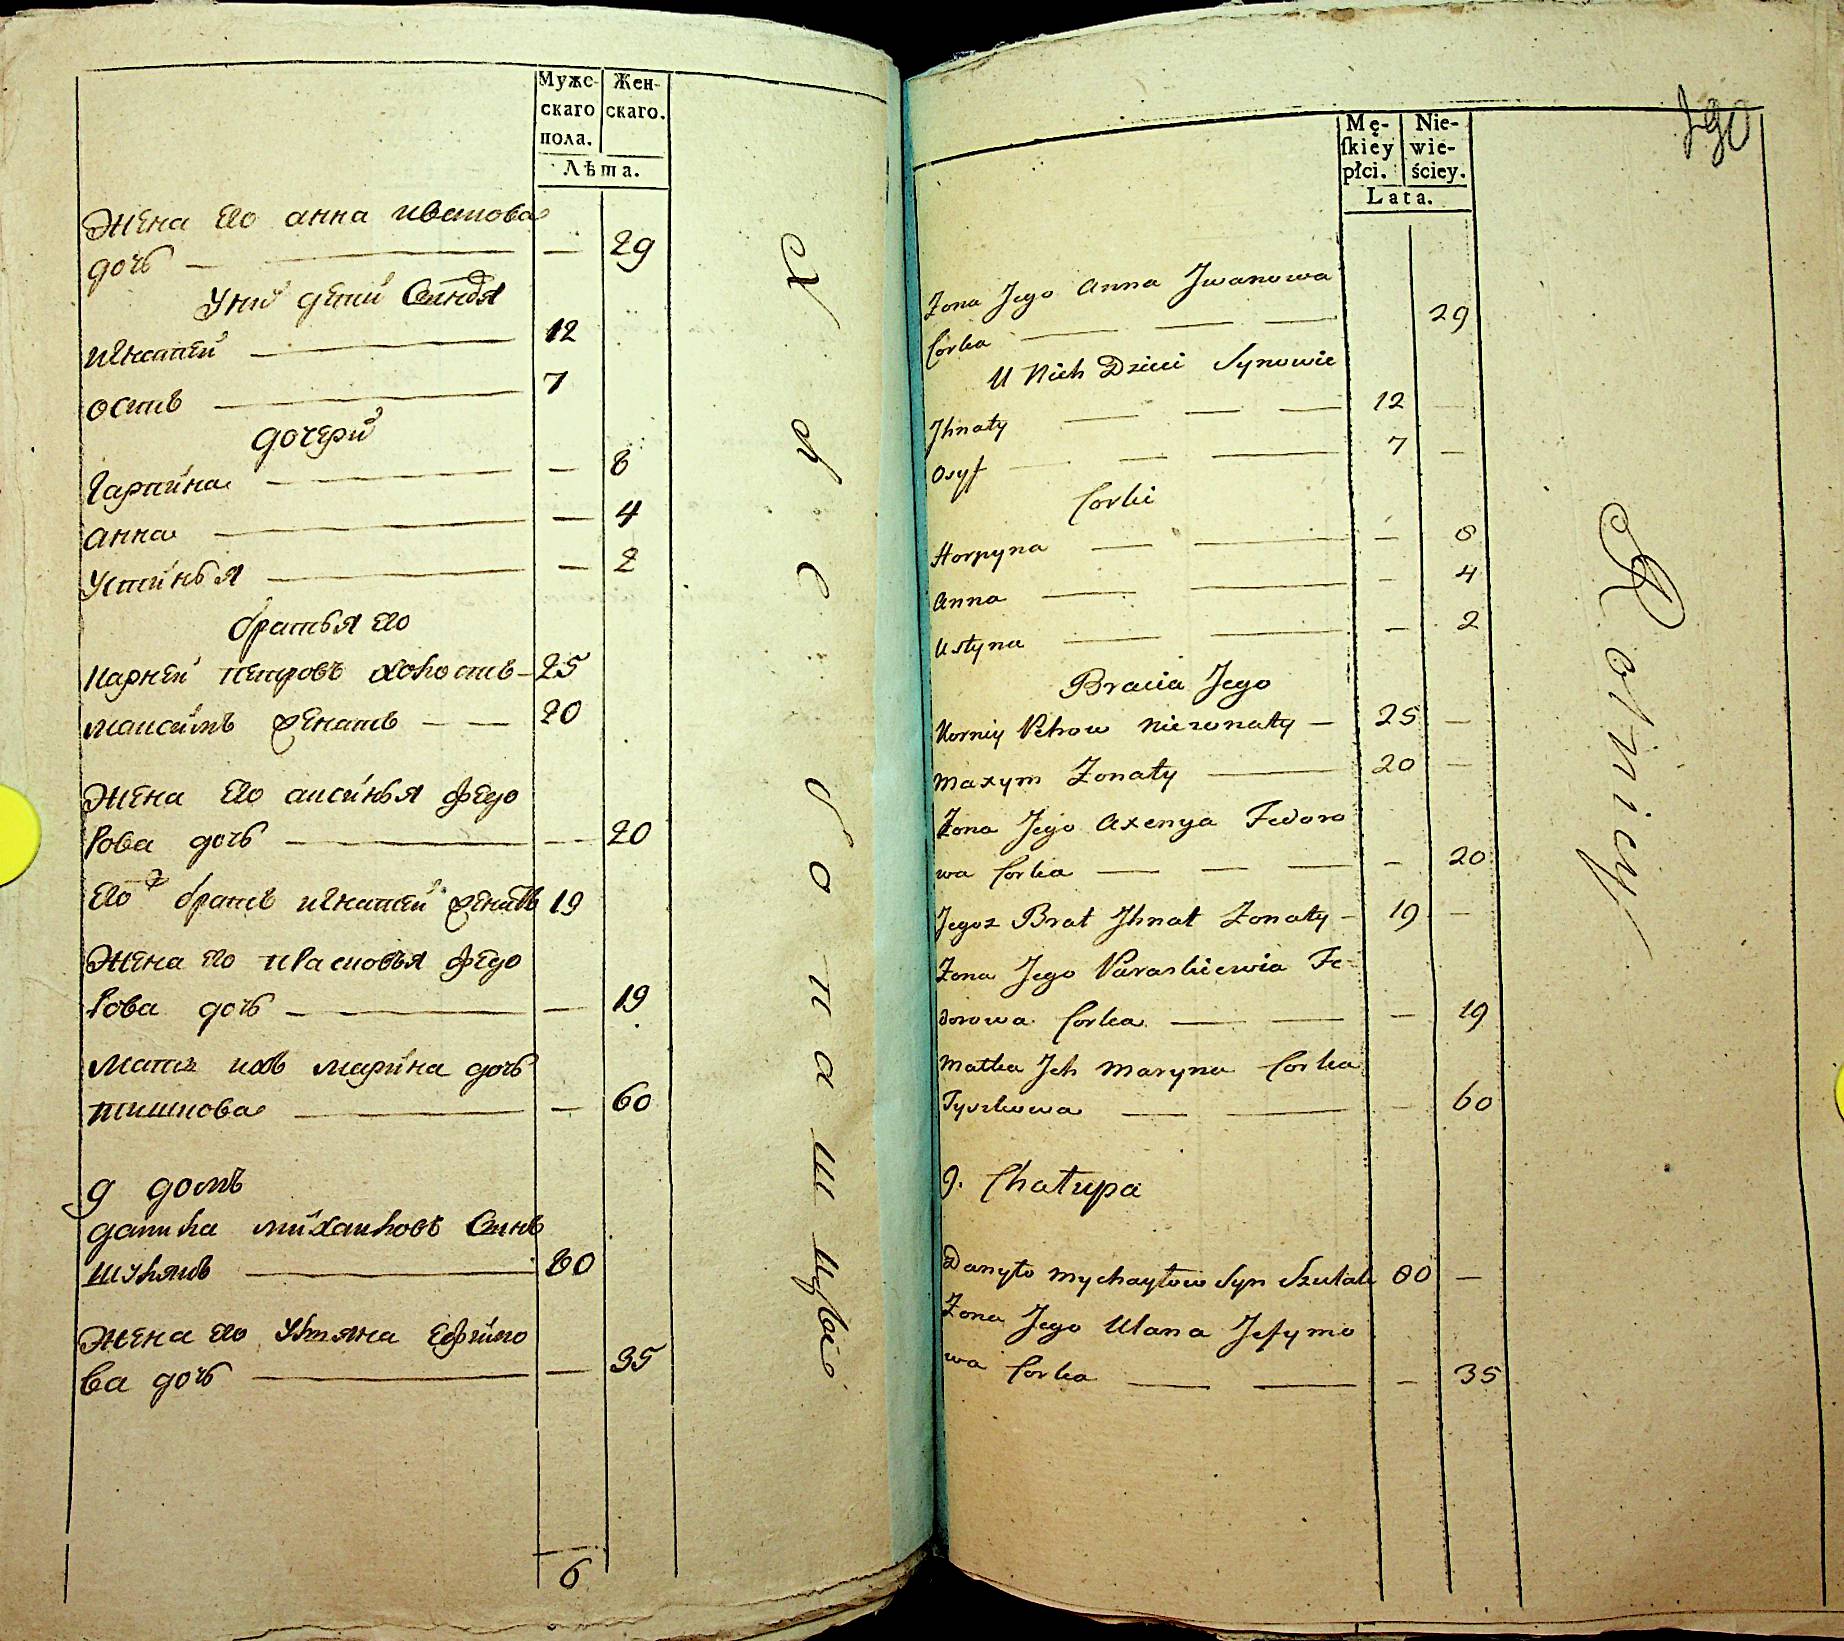 Мужс-
скаго
пола.
Жен-
скаго.
Лѣта.
жена его анна иванова
дочь — — 29
Унихъ дети Синовя
игнатей — 12
осипъ — 7
дочери
Гарпина — — 8
анна — — 4
Устинья — — 2
братья его
карней петровъ холостъ — 25
максимъ женатъ — — 20
жена его аксинья федо
рова дочь — — 20
его ж братъ игнатей женатъ 19
жена его прасковья федо
рова дочь — — 19
мать ихъ марина дочь
тишкова — — 60
9 домъ
данила михайловъ Синъ
шулякъ — 80
жена его ульяна ефимо
ва дочь — — 35
6
Хлебопашцы
Mę-
ſkiey
płci.
Nie-
wie-
ściey.
Lata.
Żona Jego Anna Jwanowa
Corka — — — 29
U Nich Dzieci Synowie
Jhnaty — — — 12 —
Osyf — — — 7 —
Corki
Horpyna — — — 8
Anna — — — 4
Ustyna — — — 2
Bracia Jego
Korniy Petrow Niezonaty — 25 —
Maxym Żonaty — 20 —
Żona Jego Axenya Fedoro
wa Corka — — — — 20
Jegoz Brat Jhnat Żonaty — 19 —
Żona Jego Paraskiewia Fe-
dorowa Corka — — — 19
Matka Jch Maryna Corka
Tyszkowa — — — 60
9. Chałupa
Danyło Mychayłow Syn Szulak 80 —
Żona Jego Ulana Jefymo
wa Corka — — — 35
Rolnicy